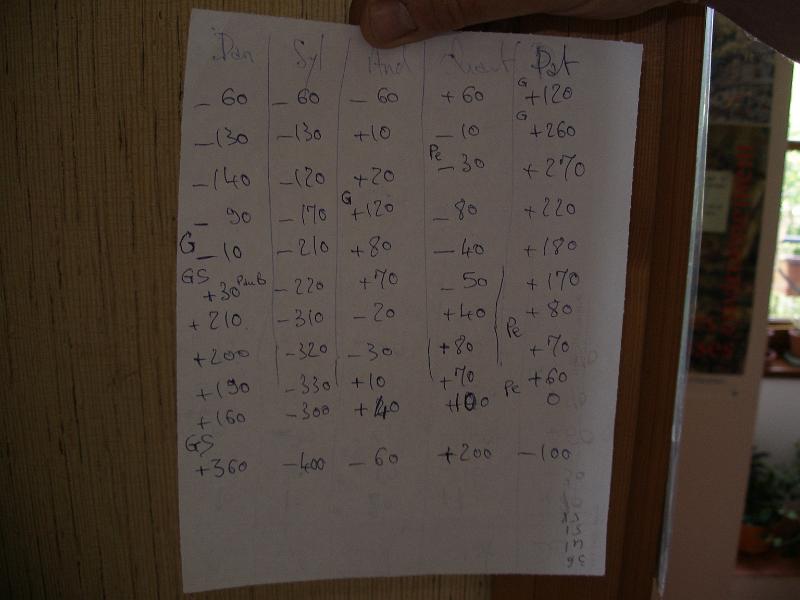 Dan Syl And Quent Pat
- 60 - 60 - 60 + 60 G +120
- 130 - 130 +10 - 10 G +260
- 140 - 120 + 20 Pe - 30 + 270
- 90 - 170 G +120 - 80 + 220
G - 10 - 210 + 80 - 40 + 180
GS + 30 PauB - 220 + 70 - 50 + 170
+ 210 - 310 - 20 + 40 + 80
+ 200 - 320 - 30 + 80 Pe + 70
+ 190 - 330 + 10 + 70 + 60
+ 160 - 300 + 40 +100 Pe 0
GS + 360 - 400 - 60 + 200 - 100